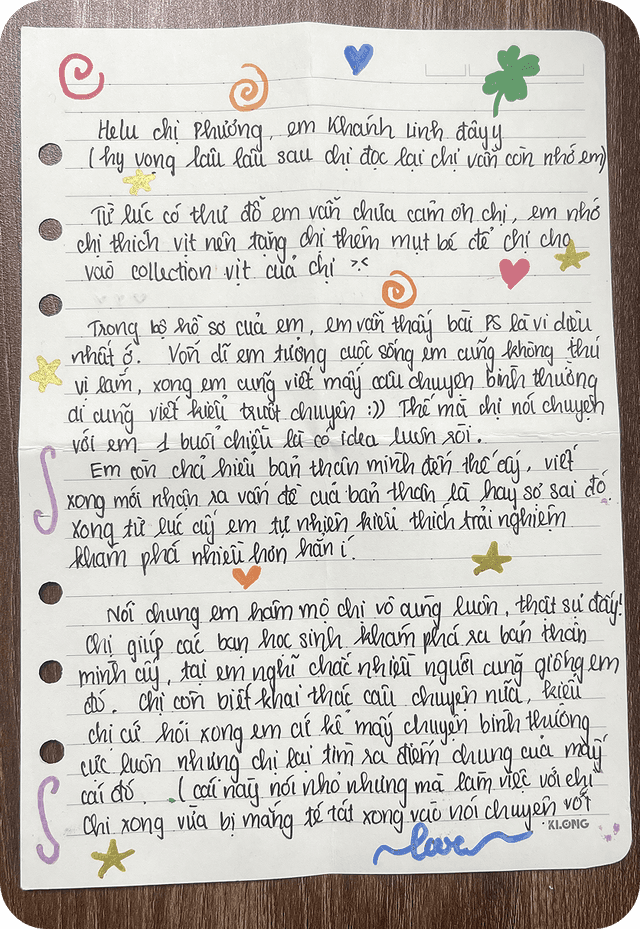 Helu chị Phương, em Khánh Linh đâyy
(hy vọng lâu lâu sau chị đọc lại chị vẫn còn nhớ em)
Từ lúc có thư đỗ em vẫn chưa cảm ơn chị, em nhớ
chị thích vịt nên tặng chị thêm một bé để chị cho
vào collection vịt của chị >.<
Trong bộ hồ sơ của em, em vẫn thấy bài PS là vi diệu
nhất ớ. Vốn dĩ em tưởng cuộc sống em cũng không thú
vị lắm, xong em cũng viết mấy câu chuyện bình thường
đi cũng viết kiểu trượt chuyện :)) Thế mà chị nói chuyện
với em 1 buổi chiều là có idea luôn rồi.
Em còn chả hiểu bản thân mình đến thế cậy, viết
xong mới nhận ra vấn đề của bản thân là hay sợ sai đó.
Xong từ lúc ấy em tự nhiên kiểu thích trải nghiệm
khám phá nhiều hơn hẳn í.
Nói chung em hâm mộ chị vô cùng luôn, thật sự đấy!
Chị giúp các bạn học sinh khám phá ra bản thân
mình ấy, tại em nghĩ chắc nhiều người cũng giống em
đó. Chị còn biết khai thác câu chuyện nữa, kiểu
chị cứ hỏi xong em cứ kể mấy chuyện bình thường
cực luôn nhưng chị lại tìm ra điểm chung của mấy
cái đó. (cái này nói nhỏ nhưng mà làm việc với chị
Chi xong vừa bị mắng té tát xong vào nói chuyện với
KLONG
love